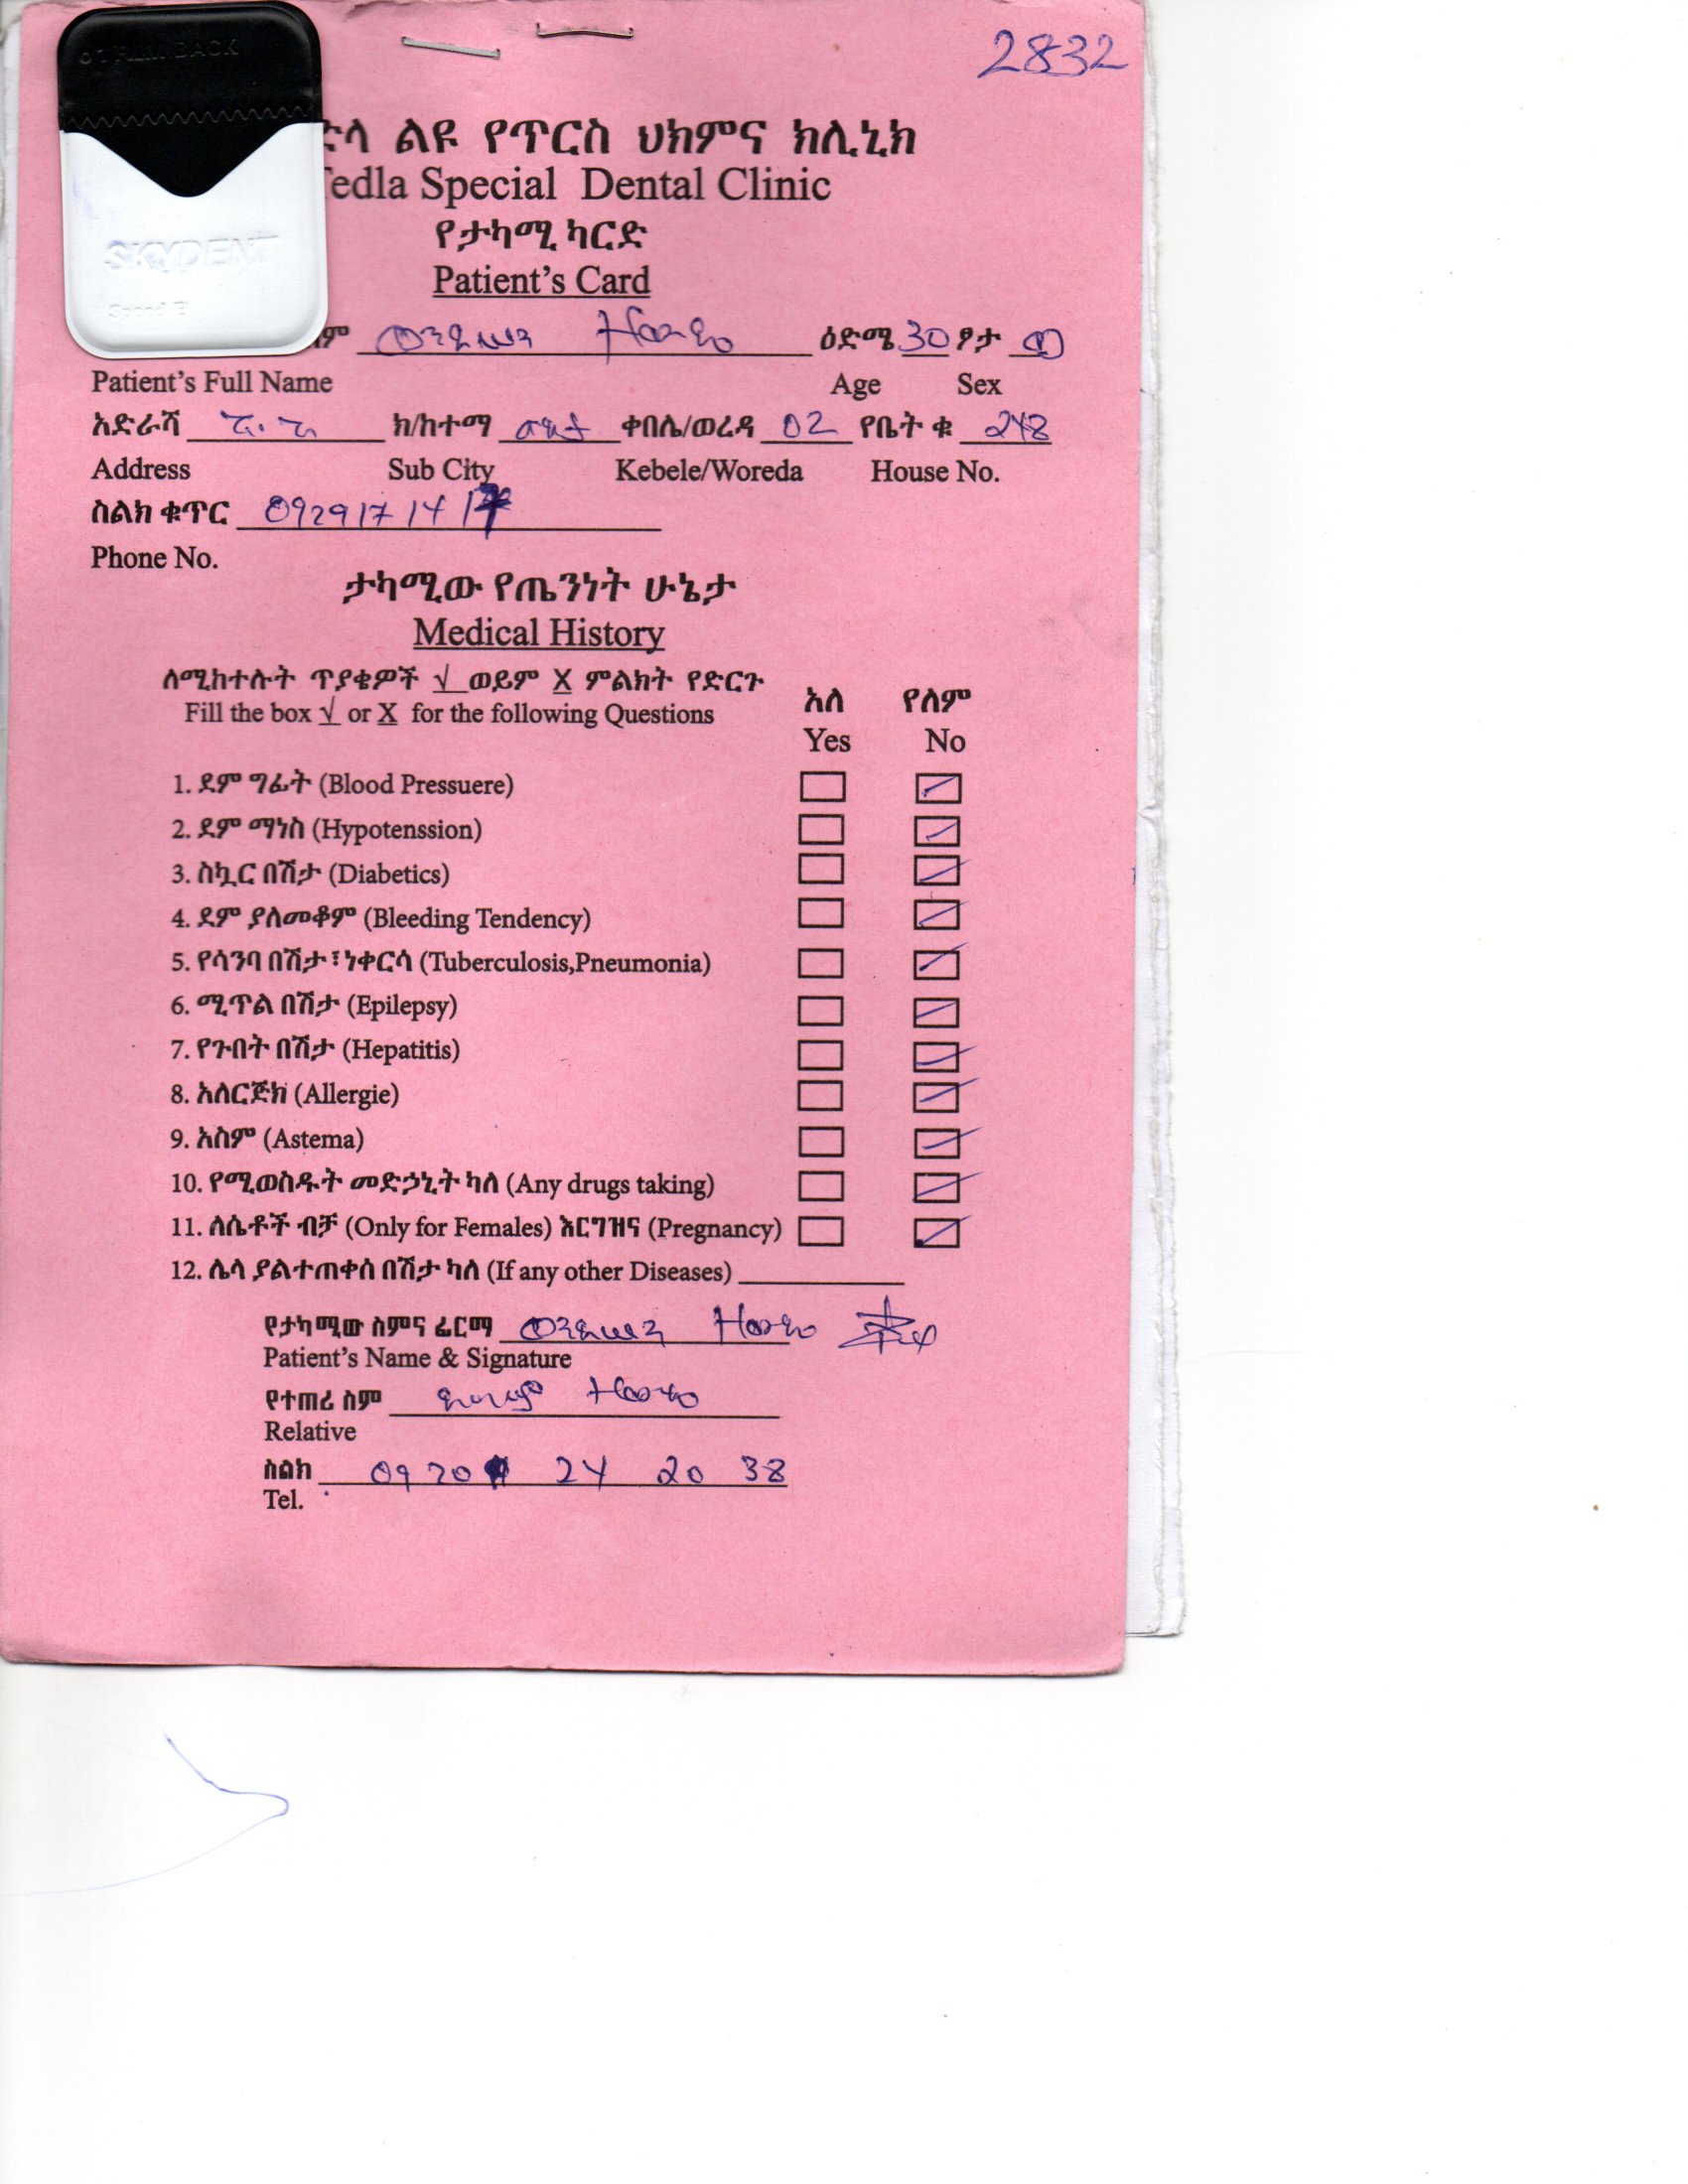 2832
OF FILM BACK
SKYDENT
Speed E
ድላ ልዩ የጥርስ ህክምና ክሊኒክ
Tedla Special Dental Clinic
የታካሚ ካርድ
Patient's Card
ም ወንድወሰን ዕድሜ 30 ፆታ ወ
Patient's Full Name Age Sex
አድራሻ ክ/ከተማ ቀበሌ/ወረዳ 02 የቤት ቁ 248
Address Sub City Kebele/Woreda House No.
ስልክ ቁጥር 0929 17 14
Phone No.
ታካሚው የጤንነት ሁኔታ
Medical History
ለሚከተሉት ጥያቄዎች √ ወይም X ምልክት የድርጉ
Fill the box √ or X for the following Questions
አለ የለም
Yes No
1. ደም ግፊት (Blood Pressuere)
2. ደም ማነስ (Hypotenssion)
3. ስኳር በሽታ (Diabetics)
4. ደም ያለመቆም (Bleeding Tendency)
5. የሳንባ በሽታ፣ነቀርሳ (Tuberculosis,Pneumonia)
6. ሚጥል በሽታ (Epilepsy)
7. የጉበት በሽታ (Hepatitis)
8. አለርጅክ (Allergie)
9. አስም (Astema)
10. የሚወስዱት መድኃኒት ካለ (Any drugs taking)
11. ለሴቶች ብቻ (Only for Females) እርግዝና (Pregnancy)
12. ሌላ ያልተጠቀሰ በሽታ ካለ (If any other Diseases)
የታካሚው ስምና ፊርማ ወንድወሰን
Patient's Name & Signature
የተጠሪ ስም
Relative
ስልክ 0920 24 20 38
Tel.